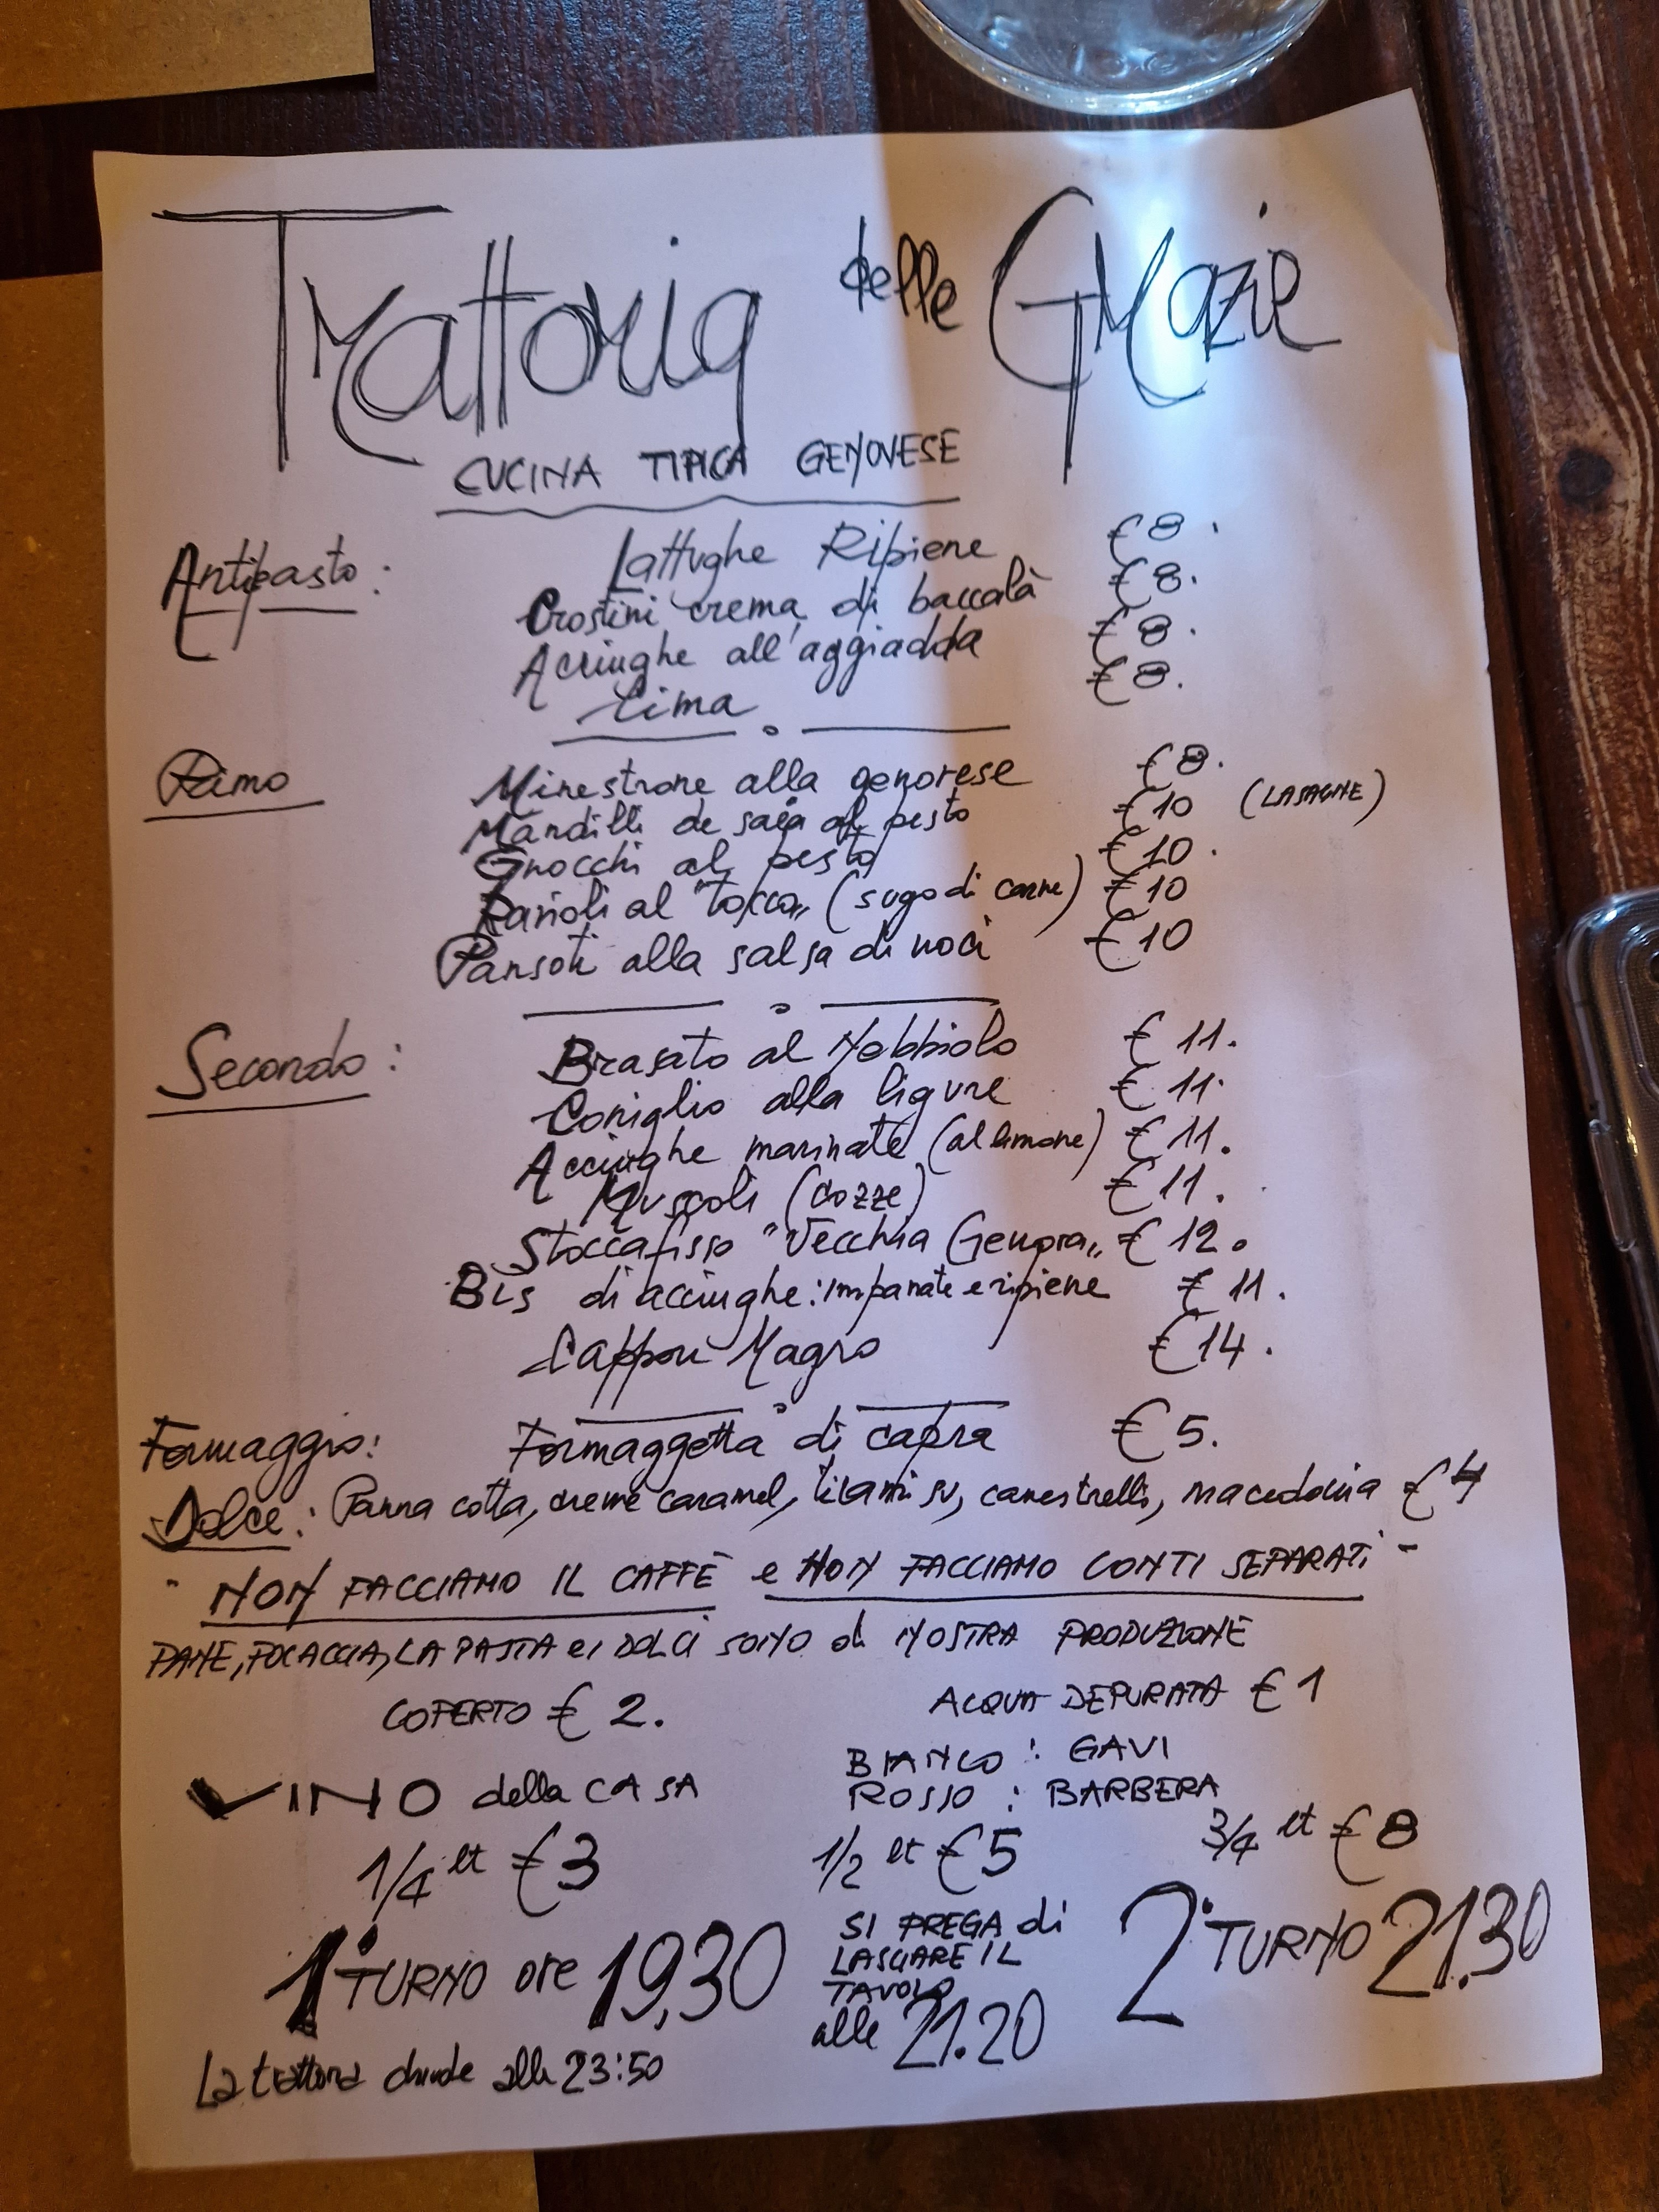 Trattoria delle Grazie
CUCINA TIPICA GENOVESE
Antipasto: Lattughe Ripiene €8.
Crostini crema di baccalà €8.
Acciughe all'aggiadda €8.
Cima €8.
Primo Minestrone alla genovese €8.
Mandilli de saea al pesto €10 (LASAGNE)
Gnocchi al pesto €10.
Ravioli al "Tocco" (sugo di carne) €10
Pansoti alla salsa di noci €10
Secondo: Brasato al Nebbiolo € 11.
Coniglio alla ligure € 11.
Acciughe marinate (al limone) € 11.
Muscoli (cozze) € 11.
Stoccafisso "Vecchia Genova" € 12.
Bis di acciughe: impanate e ripiene € 11.
Cappon Magro €14.
Formaggio: Formaggetta di capra € 5.
Dolce: Panna cotta, creme caramel, tirami su, canestrelli, macedonia € 4
- NON FACCIAMO IL CAFFÈ e NON FACCIAMO CONTI SEPARATI -
PANE, FOCACCIA, LA PASTA e I DOLCI SONO di NOSTRA PRODUZIONE
COPERTO € 2. ACQUA DEPURATA € 1
VINO della CASA BIANCO : GAVI
ROSSO : BARBERA
1/4 lt € 3 1/2 lt € 5 3/4 lt € 8
1° TURNO ore 19,30 SI PREGA di LASCIARE IL TAVOLO alle 21.20 2° TURNO 21.30
La trattoria chiude alle 23:50